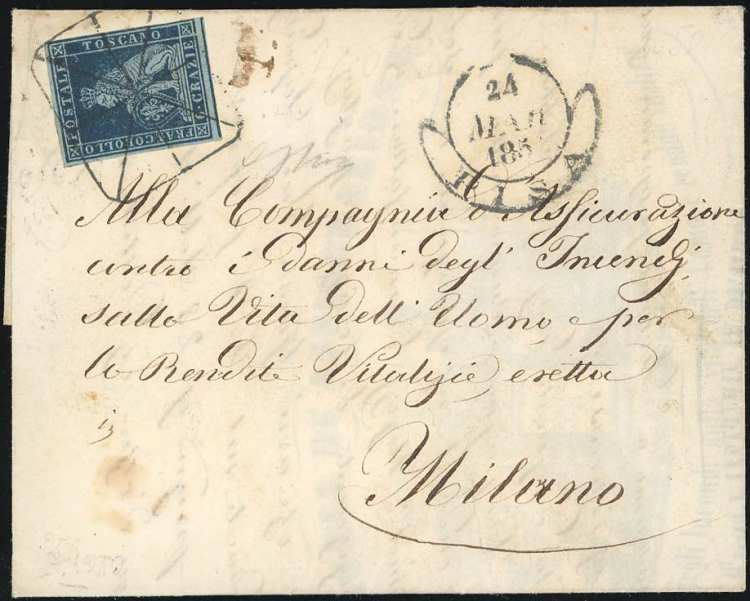 POSTALE
TOSCANO
6. GRAZIE
FRANCOBOLLO
24
MAR
185
PISA
Alla Compagnia d'Assicurazione
contro i danni degl' Incendj
sulla Vita dell' Uomo e per
le Rendite Vitalizie, eretta
in
Milano